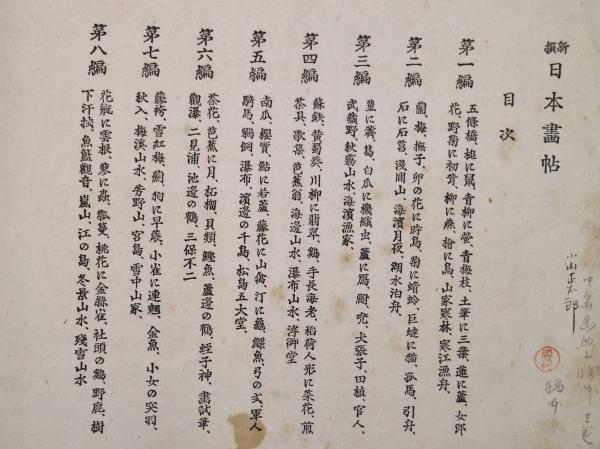 新撰 日本畫帖
目次
第一編 五條橋、槌に鼠、青柳に螢、青梅枝、土筆に三葉、蓮に蘆、女郎
花、野菊に初茸、柳に燕、檜に鳥、山家寒林、寒江漁舟、
第二編 蘭、梅、撫子、卯の花に時鳥、菊に蜻蛉、巨燵に猫、孤馬、引舟、
石に石菖、淺間山、海濱月夜、湖水泊舟、
第三編 菫に蕨、葛、白瓜に機織虫、蘆に雁、鮒、兜、犬張子、田植、官人、
武藏野、秋霧山水、海濱漁家、
第四編 蘇鉄、黄蜀葵、川柳に翡翠、鷄、手長海老、稻荷人形に菜花、煎
茶具、歌集、芭蕉翁、海邊山水、瀑布山水、淨御堂
第五編 南瓜、櫻實、鮎に若蘆、藤花に山禽、汀に龜、鰹魚、弓の弎、軍人
騎馬、鵜飼、瀑布、濱邊の千鳥、松島五大堂、
第六編 茶花、芭蕉に月、柘榴、貝類、鰹魚、蘆邊の鶴、蛭子神、書試筆、
觀瀑、二見浦、池邊の鶴、三保不二
第七編 藤袴、雪紅梅、菊、狗に早蕨、小雀に連翹、金魚、小女の突羽、
秋入、梅溪山水、芳野山、宮島、雪中山家、
第八編 花瓶に雲板、蓼に蟲、瓢蔓、桃花に金絲雀、社頭の鷄、野鹿、樹
下汗拭、魚籃觀音、嵐山、江の島、冬景山水、殘雪山水
小山正太郎